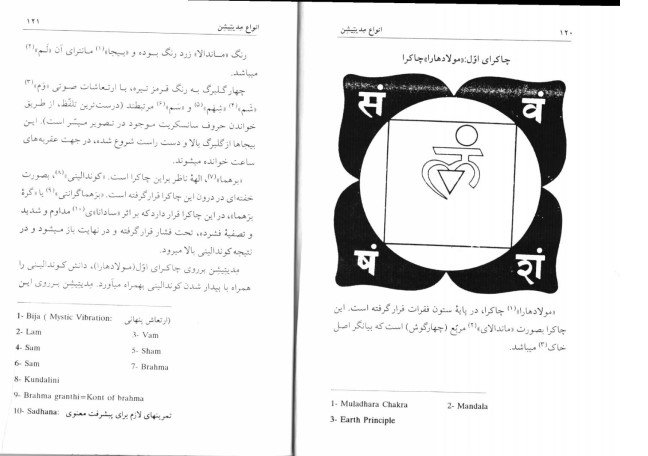 ۱۲۰
انواع مدیتیشن
چاکرای اوّل:«مولادهارا»چاکرا
सं
वं
लं
षं
शं
«مولادهارا»(۱) چاکرا، در پایهٔ ستون فقرات قرار گرفته است. این
چاکرا بصورت «ماندالای»(۲) مربّع (چهارگوش) است که بیانگر اصل
خاک(۳) میباشد.
1- Muladhara Chakra 2- Mandala
3- Earth Principle
انواع مدیتیشن
۱۲۱
رنگ «ماندالا» زرد رنگ بوده و «بیجا»(۱) مانترای آن «لَم»(۲)
میباشد.
چهار گلبرگ به رنگ قرمز تیره، با ارتعاشات صوتی «وَم»(۳)
«شَم»(۴) «شهَم»(۵) و «سَم»(۶) مرتبطند (درست‌ترین تلفّظ، از طریق
خواندن حروف سانسکریت موجود در تصویر میسّر است). این
بیجاها از گلبرگ بالا و دست راست شروع شده، در جهت عقربه‌های
ساعت خوانده میشوند.
«برهما»(۷)، الههٔ ناظر براین چاکرا است. «کوندالینی»(۸)، بصورت
خفته‌ای در درون این چاکرا قرار گرفته است. «برهماگرانتی»(۹) یا «گرهٔ
برهما»، در این چاکرا قرار دارد که بر اثر «سادانا»ی(۱۰) مداوم و شدید
و تصفیهٔ فشرده، تحت فشار قرار گرفته و در نهایت باز میشود و در
نتیجه کوندالینی بالا میرود.
مدیتیشن برروی چاکرای اوّل(مولادهارا)، دانش کوندالینی را
همراه با بیدار شدن کوندالینی بهمراه میآورد. مدیتیشن برروی این
1- Bija ( Mystic Vibration: ارتعاش پنهانی)
2- Lam 3- Vam
4- Sam 5- Sham
6- Sam 7- Brahma
8- Kundalini
9- Brahma granthi=Kont of brahma
10- Sadhana: تمرینهای لازم برای پیشرفت معنوی